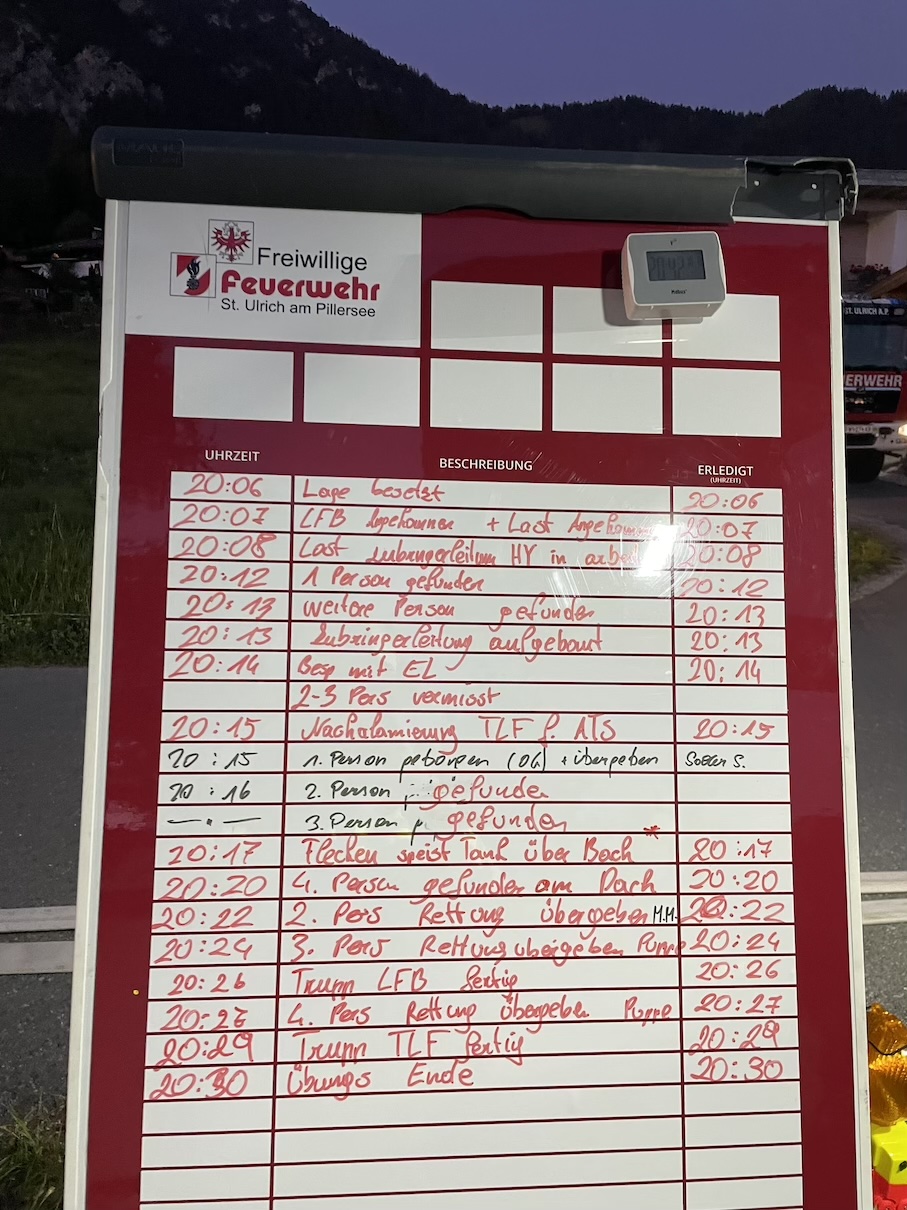 Freiwillige
Feuerwehr
St. Ulrich am Pillersee
ST. ULRICH A.P.
ERWEHR
UHRZEIT BESCHREIBUNG ERLEDIGT
(UHRZEIT)
20:06 Lage besetzt 20:06
20:07 LFB Angekommen + Last 20:07
20:08 Last Zubringerleitung HY in 20:08
20:12 1 Person gefunden 20:12
20:13 weitere Person gefunden 20:13
20:13 Zubringerleitung aufgebaut 20:13
20:14 Besp mit EL 20:14
2-3 Pers vermisst
20:15 Nachalamierung TLF f. ATS 20:15
20:15 1. Person geborgen (OG) + übergeben S.
20:16 2. Person gefunden
—"— 3. Person gefunden
20:17 Flecken speist Tank über Bach * 20:17
20:20 4. Person gefunden am Dach 20:20
20:22 2. Pers Rettung übergeben M.M. 20:22
20:24 3. Pers Rettung übergeben Puppe 20:24
20:26 Trupp LFB fertig 20:26
20:27 4. Pers Rettung übergeben Puppe 20:27
20:29 Trupp TLF fertig 20:29
20:30 Übungs Ende 20:30